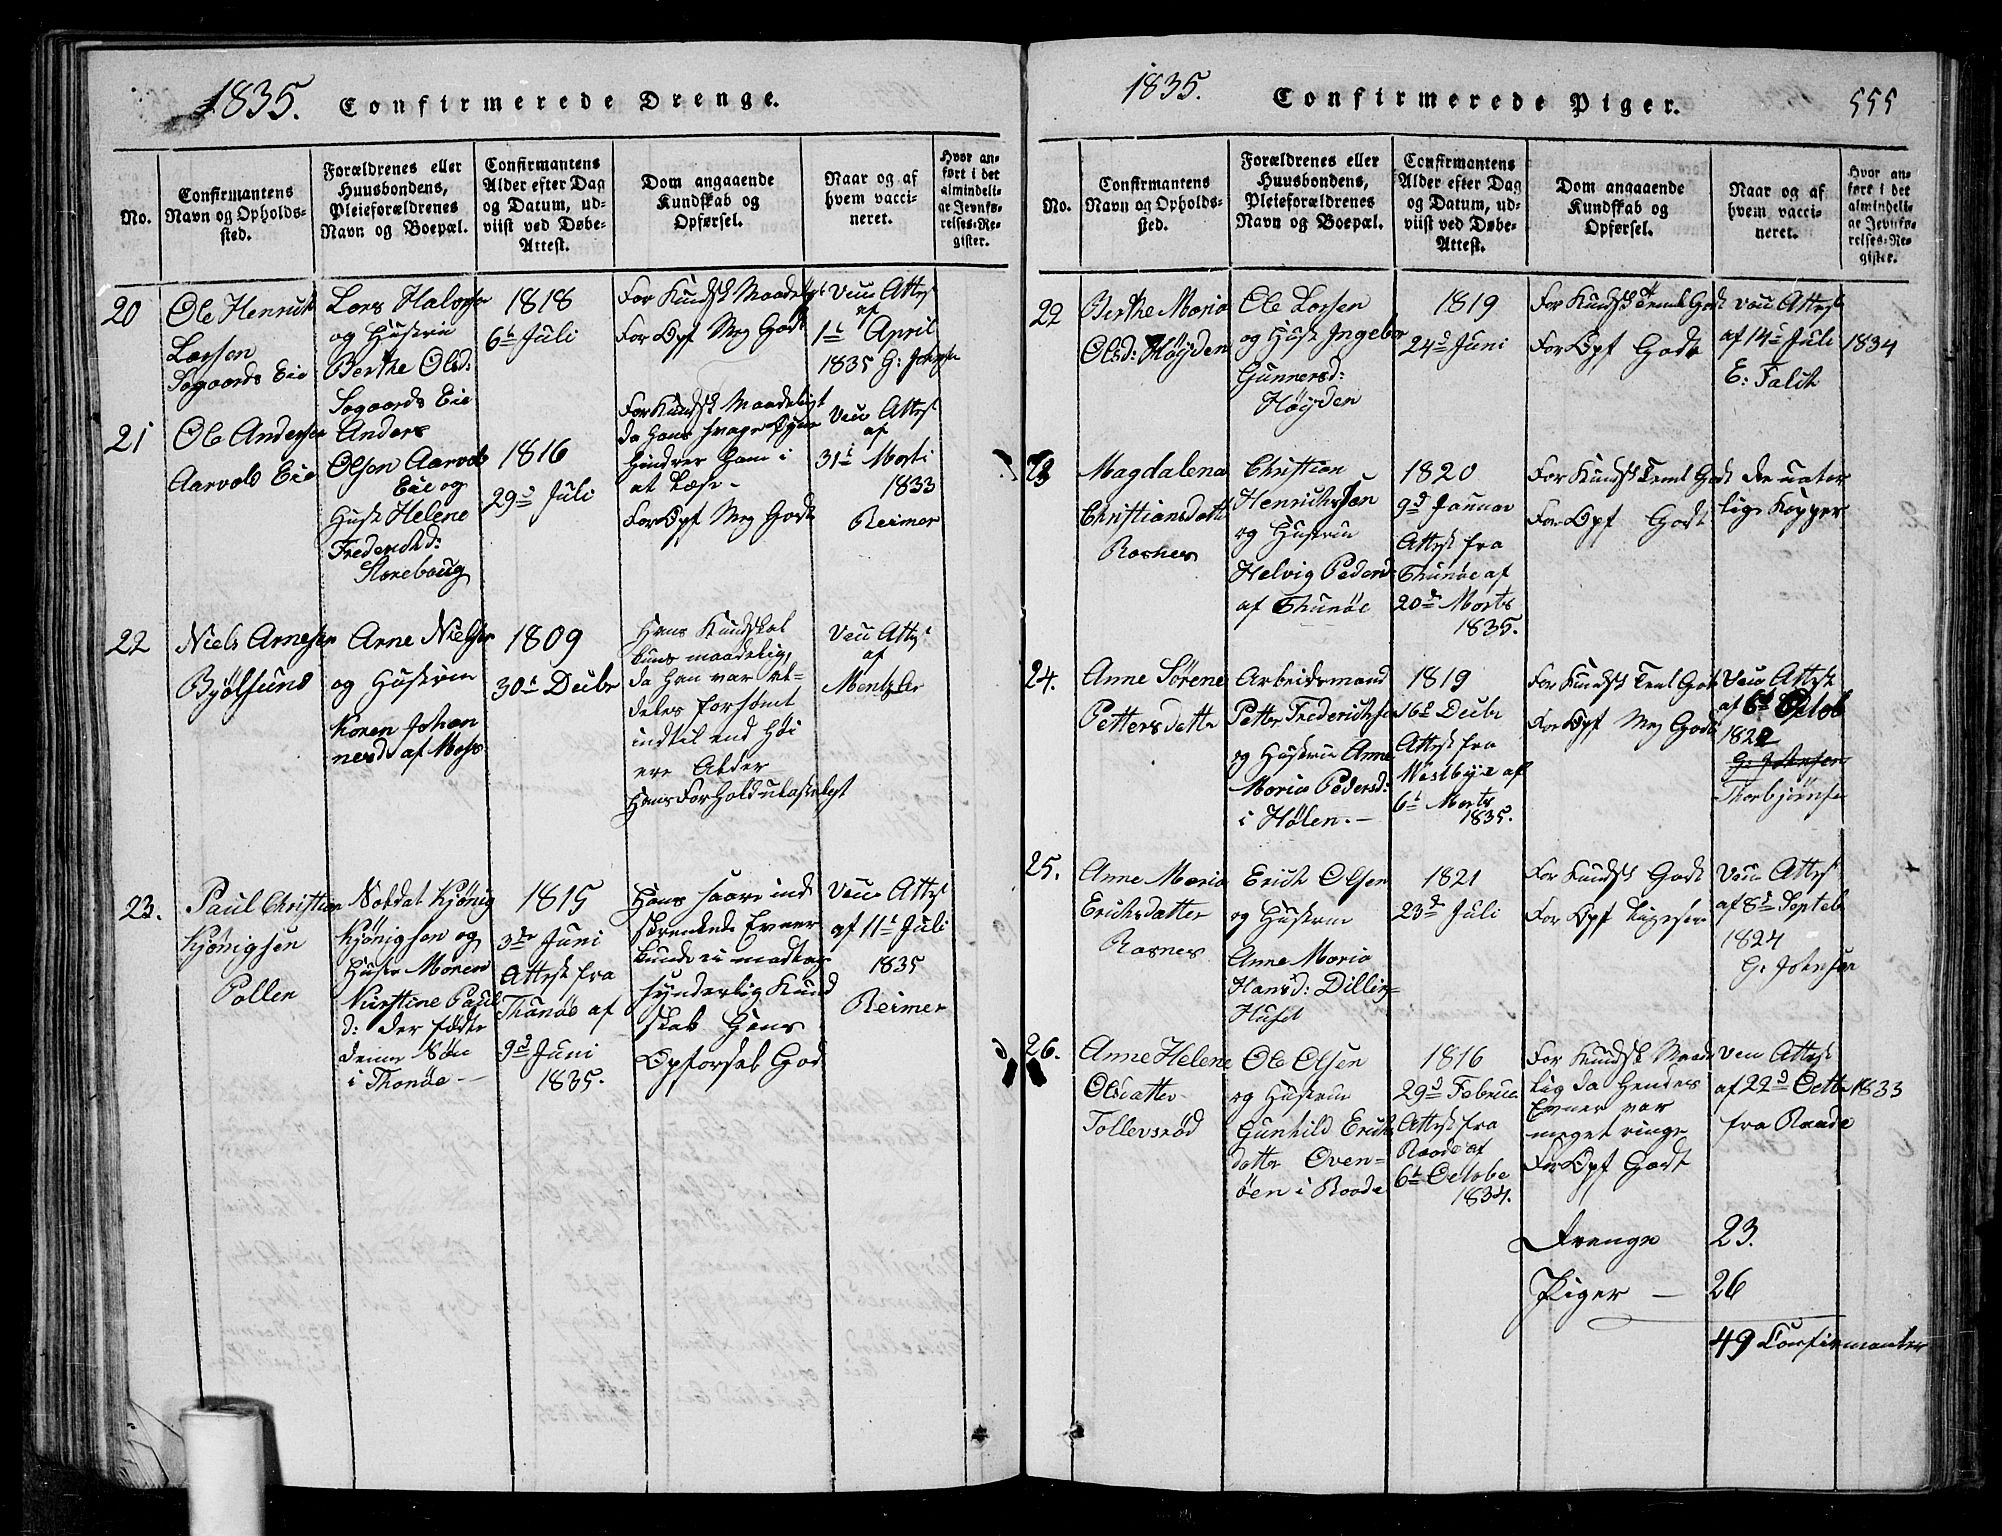 1835. Confirmerede Drenge.
No.
Confirmantens
Navn og Opholds-
sted.
Forældrenes eller
Huusbondens,
Pleieforældrenes
Navn og Boepæl.
Confirmantens
Alder efter Dag
og Datum, ud-
viist ved Døbe-
Attest.
Dom angaaende
Kundskab og
Opførsel.
Naar og af
hvem vacci-
neret.
Hvor an-
ført i det
almindeli-
ge Jevnfø-
relses-Re-
gister.
20
Ole Henrich
Larsen
Søgaards Eie
Lars Halvors
og Hustrue
Berthe Olsd:
Søgaards Eie
1818
6te Juli
For Kundsk Maadeligt
For Opf Meg Godt
Vac Attest
af
1te April
1835 G: Johnse
21
Ole Anderse
Aarvold Eie
Anders
Olsen Aarvold
Eie og
Hust Helene
Fredrichd:
Storebaug
1816
29de Juli
For Kundsk Maadeligt
da hans svage Syne
hindrer ham i
at Læse -
For Opf Meg Godt
Vac Attest
af
31te Marti
1833
Reimer
22
Niels Arnesen
Bjølsund
Arne Nielsen
og Hustrue
Karen Johan
nesd af Moss
1809
30te Decbr
Hans Kundskab
kuns maadelig,
da han var al-
deles forsømt
indtil end Høi
ere Alder
Hans Forhold ulasteligt
Vac Attest
af
Mentzler
23.
Paul Christian
Kjønigsen
Pollen
Soldat Kjønig
Kjønigsen og
Huste Maren
Kirstine Paul
d: der fødte
denne Søn
i Thunøe -
1815
3die Juni
Attest fra
Thunøe af
9de Juni
1835.
Hans saare ind
skrenkede Evner
kunde ei modtage
synderlig Kund
skab Hans
Opforsel God
Vac Attest
af 11te Juli
1835
Reimer
1835. Confirmerede Piger. 555
No.
Confirmantens
Navn og Opholds-
sted.
Forældrenes eller
Huusbondens,
Pleieforældrenes
Navn og Boepæl.
Confirmantens
Alder efter Dag
og Datum, ud-
viist ved Døbe-
Attest.
Dom angaaende
Kundskab og
Opførsel.
Naar og af
hvem vacci-
neret.
Hvor an-
ført i det
almindeli-
ge Jevnfø-
relses-Re-
gister.
22
Berthe Maria
Olsd: Høyden
Ole Larsen
og Hust Ingebor
Gunnersd:
Høyden
1819
24de Juni
For Kundsk Teml Godt
For Opf Godt
Vac Attest
af 14de Juli 1834
E: Falch
23
Magdalena
Christiansdatt
Rosnes
Christian
Henrichsen
og Hustrue
Helvig Pedersd
af Thunøe
1820
9de Januar
Attest fra
Thunøe af
20de Marts
1835.
For Kundsk Teml Godt
For Opf Godt
De natur
lige Kopper
24.
Anne Sørene
Pettersdatte
Arbeidsmand
Petter Fredrichse
og Hustrue Anne
Maria Pedersd:
i Hølen. -
1819
16de Decbr
Attest fra
Westbye af
6te Marts
1835.
For Kundsk Teml Godt
For Opf Meg Godt
Vac Attest
af 6te Octob
1822
G: Johnsen
Thorbjørnse
25.
Anne Maria
Erichsdatter
Rosnes
Erich Olsen
og Hustrue
Anne Maria
Hansd: Dilling
Huset
1821
23de Juli
For Kundsk Godt
For Opf Ligesaa
Vac Attest
af 8de Septeb
1824
G: Johnsen
26.
Anne Helene
Olsdatter
Tollevsrød
Ole Olsen
og Hustrue
Gunhild Erichs
datter Oven-
øen i Raade
1816
29de Februa
Attest fra
Raade af
6te Octobe
1834.
For Kundsk Maade
lig da Hendes
Evner var
meget ringe
For Opf Godt
Vac Attest
af 22de Octb 1833
fra Raade
Drenge 23.
Piger - 26
49 Confirmanter